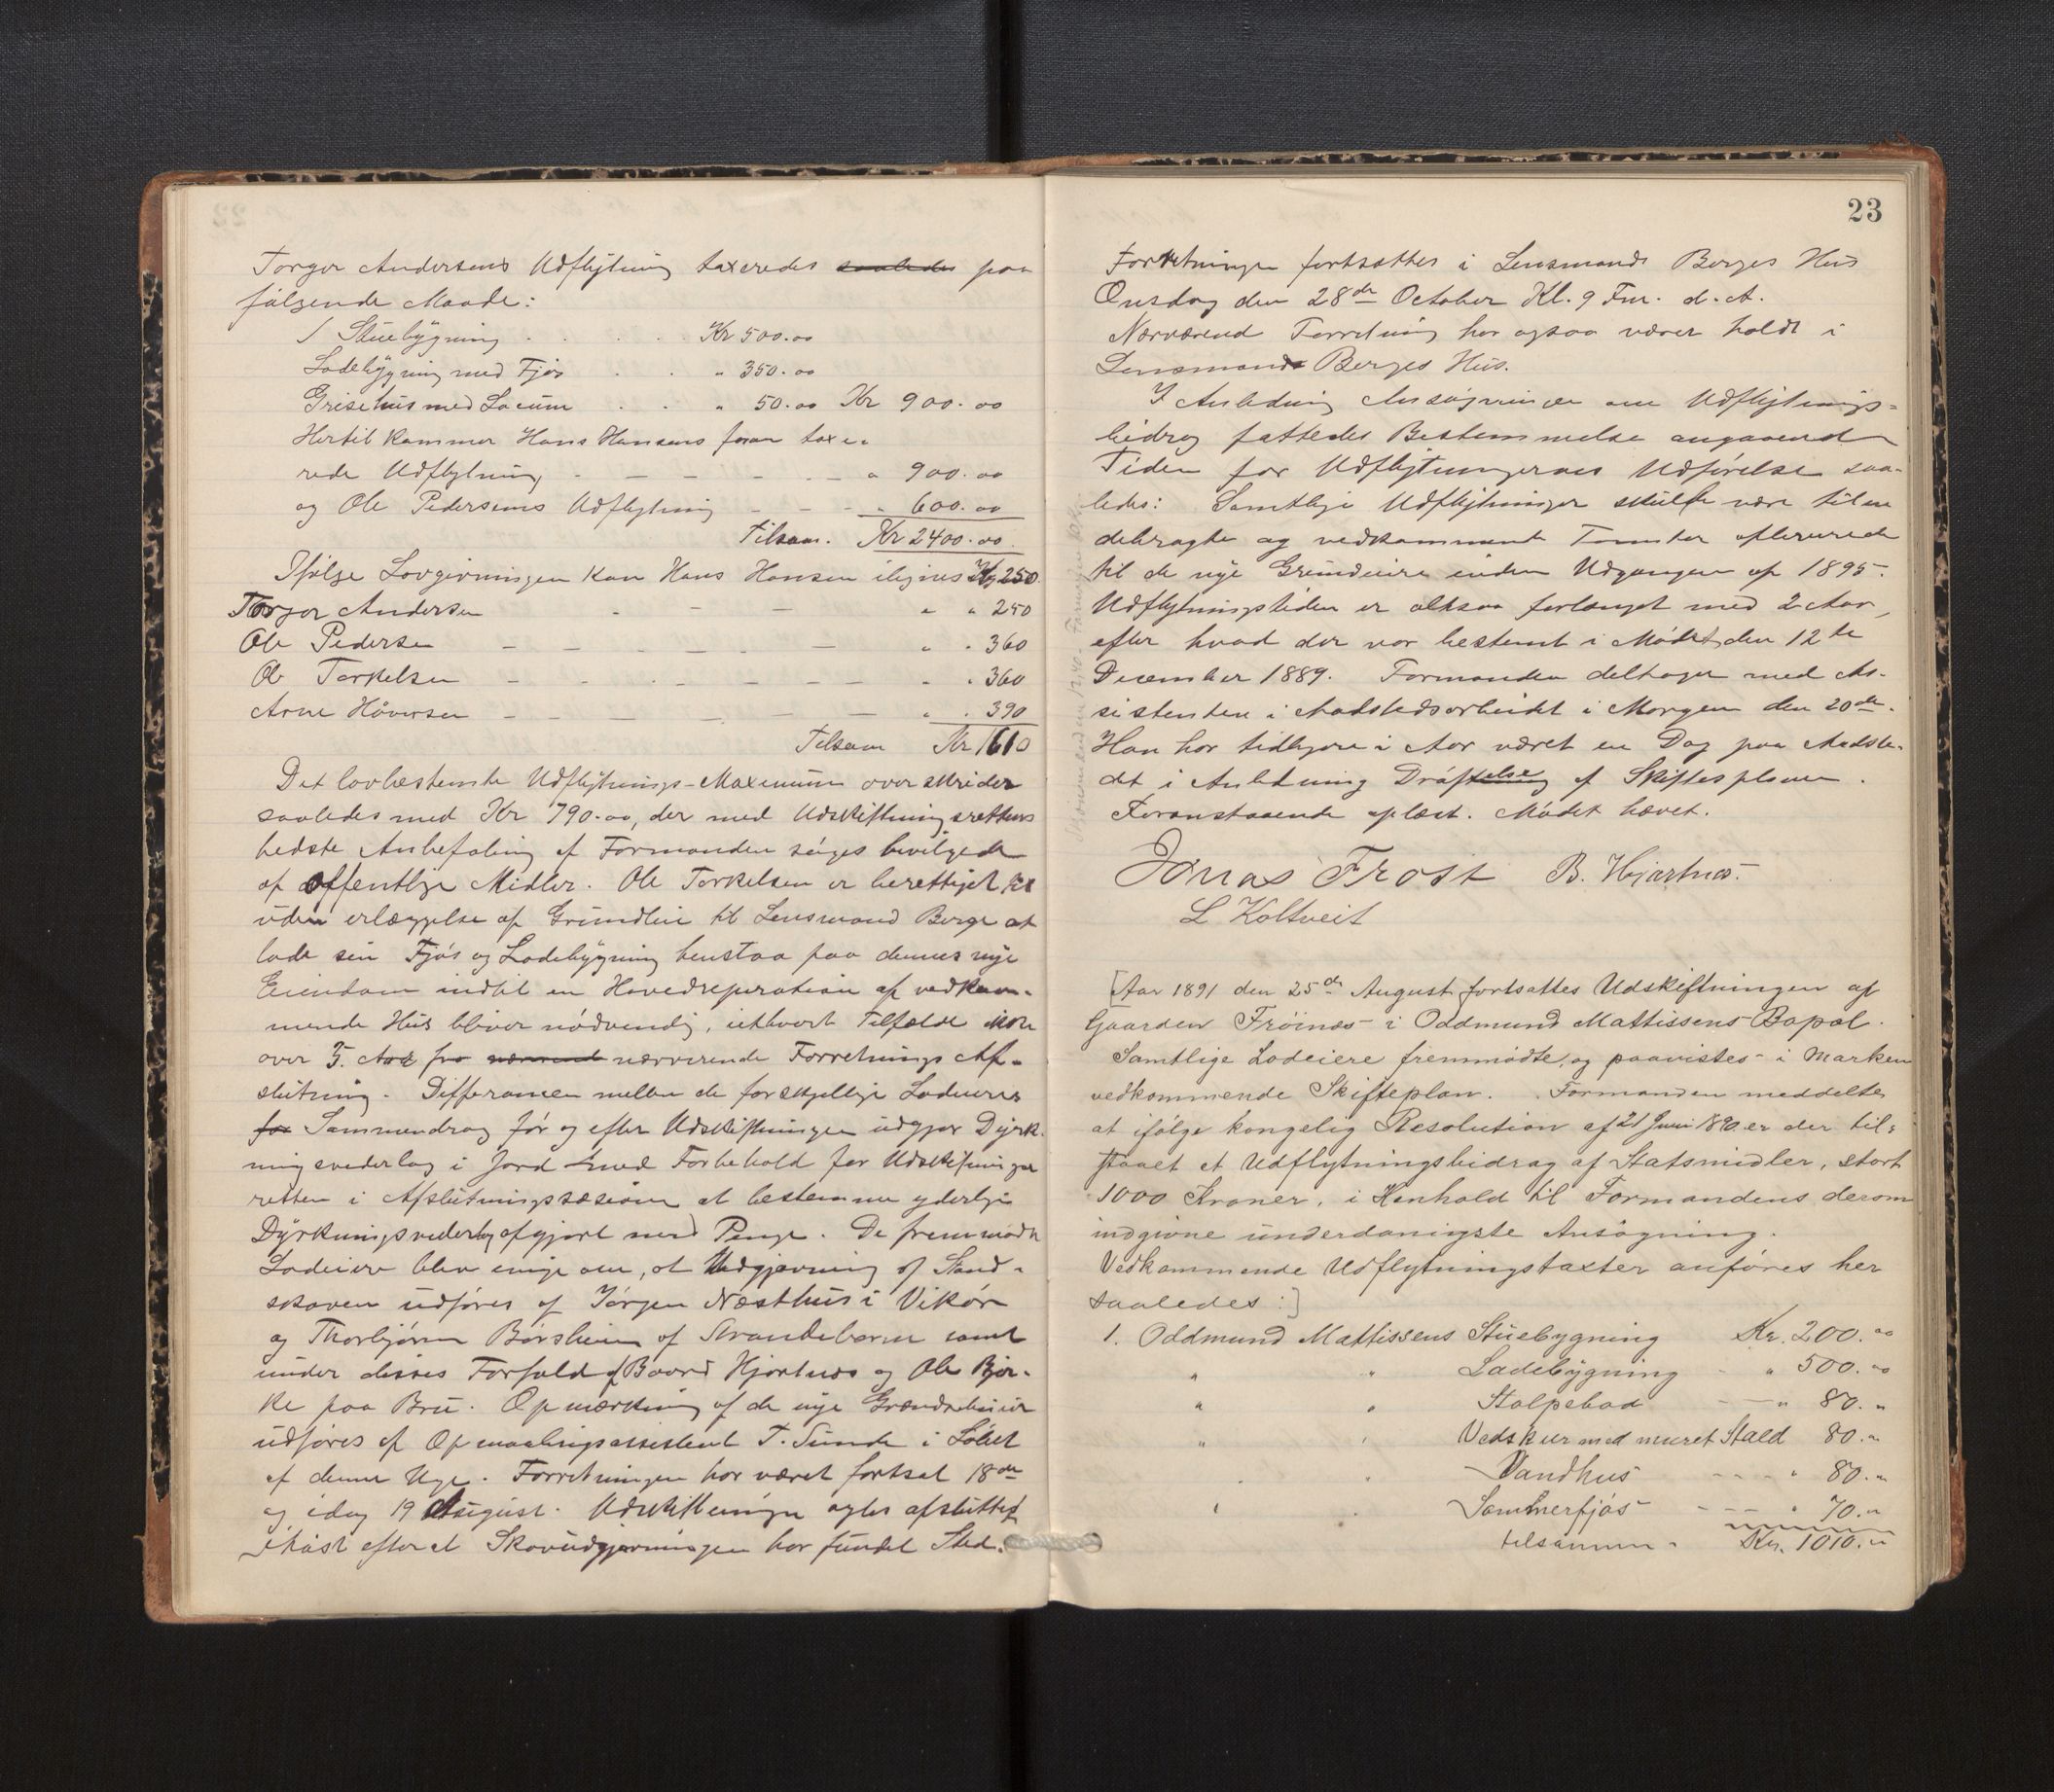 Torger Andersens Udflytning taxeredes saaledes paa
følgende Maade:
1 Stuebygning . . . . Kr 500.00
Ladebygning med Fjøs . . " 350.00
Grisehus med Locum . . " 50.00 Kr 900.00
Hertil kommer Hans Hansens foran taxe-
rede Udflytning - - - - - " 900.00
og Ole Pedersens Udflytning - - - " 600.00
Tilsam. Kr 2400.00
Ifølge Lovgivningen kan Hans Hansen ilignes Kr 250
Torger Andersen - - - " " 250
Ole Pedersen - - - - - - " " 360
Ole Torkelsen - - - - - - - " " 360
Arne Håversen - - - - - - " " 390
Tilsam Kr 1610
Det lovbestemte Udflytnings-Maximum overskrider
saaledes med Kr 790.00, der med Udskiftningsrettens
bedste Anbefaling af Formanden søges bevilgede
af offentlige Midler. Ole Torkelsen er berettiget til
uden erlæggelse af Grundleie til Lensmand Berge at
lade sin Fjøs og Ladebygning henstaa paa dennes nye
Eiendom indtil en Hovedreperation af vedkom-
mende Hus bliver nødvendig, iethvert Tilfælde ikke
over 5. Aar fra nærværende Forretnings Af-
slutning. Differancen mellem de forskjellige Lodeieres
for Sammendrag før og efter Udskiftningen udgjør Dyrk-
ningsvederlag i Jord med Forbehold for Udskiftnings
retten i Afslutningssessionen at bestemme yderlige
Dyrkningsvederlag afgjort med Penge. De fremmødte
Lodeiere blev enige om, at Udgjevning af Stand-
skoven udføres af Jørgen Næsthus i Vikør
og Thorbjørn Børsheim af Strandebarm samt
under disses Forfald af Baard Hjartnes og Ole Bjør-
ke paa Bru. Opmærkning af de nye Grændselinier
udføres af Opmaalingsassistent T. Sunde i Løbet
af denne Uge. Forretningen har været fortsat 18de
og idag 19 August. Udskiftningen agtes afsluttet
ihøst efterat Skovudgjevningen har fundet Sted.
23
Forretningen fortsættes i Lensmands Berges Hus
Onsdag den 28de October Kl. 9 Fm. d. A.
Nærværende Forretning har ogsaa været holdt i
Lensmands Berges Hus.
I Anledning Ansøgningen om Udflytnings-
bidrag fattedes Bestemmelse angaaende
Tiden for Udflytningernes Udførelse saa-
ledes: Samtlige Udflytninger skulle være tilen
debragte og vedkommende Tomter afleverede
til de nye Grundeiere inden Udgangen af 1895.
Udflytningstiden er altsaa forlænget med 2 Aar,
efter hvad der var bestemt i Mødet den 12te
December 1889. Formanden deltager med As-
sistenten i Aastedsarbeidet i Morgen den 20de.
Han har tidligere i Aar været en Dag paa Aaste-
det i Anledning Drøftelse af Skiftesplanen.
Foranstaaende oplæst. Mødet hævet.
Jonas Frost B. Hjartnæs.
L Koltveit
[Aar 1891 den 25de August fortsattes Udskiftningen af
Gaarden Frøinæs i Oddmund Mattissens Bopæl.
Samtlige Lodeiere fremmødte, og paavistes i Marken
vedkommende Skifteplan. Formanden meddelte,
at ifølge kongelig Resolution af 21 Juni 1890 er der til-
staaet et Udflytningsbidrag af Statsmidler, stort
1000 Kroner, i Henhold til Formandens derom
indgivne underdanigste Ansøgning.
Vedkommende Udflytningstaxter anføres her
saaledes:]
1. Oddmund Mattissens Stuebygning Kr. 200.00
" " Ladebygning - " 500.00
" " Stolpebod - " 80. "
" " Vedskur med muret Stald 80. "
" " Vandhus - - - " 80. "
" " Sommerfjøs - - - " 70. "
tilsammen. Kr. 1010. "